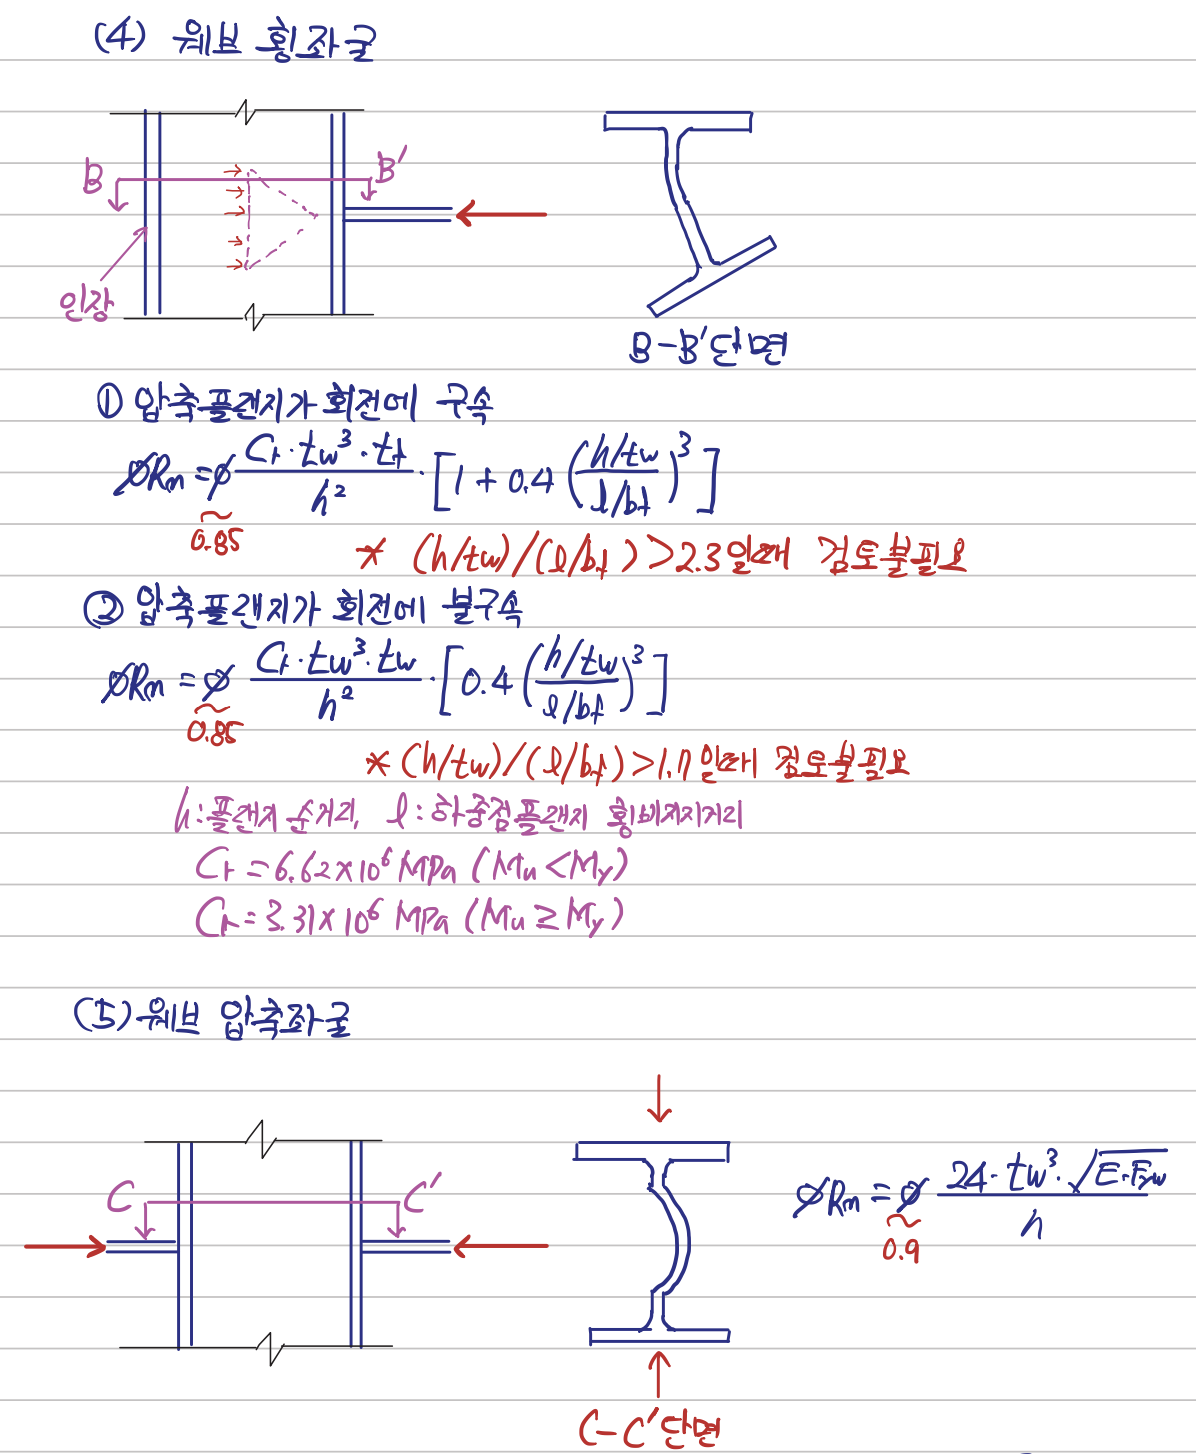 (4) 웨브 횡좌굴
B B′
인장
B-B′단면
① 압축플랜지가 회전에 구속
øRn = ø Cr·tw³·tf / h² · [1 + 0.4 ((h/tw) / (l/bf))³]
0.85
* (h/tw)/(l/bf) > 2.3일때 검토불필요
② 압축플랜지가 회전에 불구속
øRn = ø Cr·tw³·tw / h² · [0.4 ((h/tw) / (l/bf))³]
0.85
* (h/tw)/(l/bf) > 1.7일때 검토불필요
h:플랜지 순거리, l:하중점플랜지 횡비지지거리
Cr = 6.62×10⁶ MPa (Mu < My)
Cr = 3.31×10⁶ MPa (Mu ≥ My)
(5) 웨브 압축좌굴
C C′
øRn = ø 24·tw³·√E·Fyw / h
0.9
C-C′단면